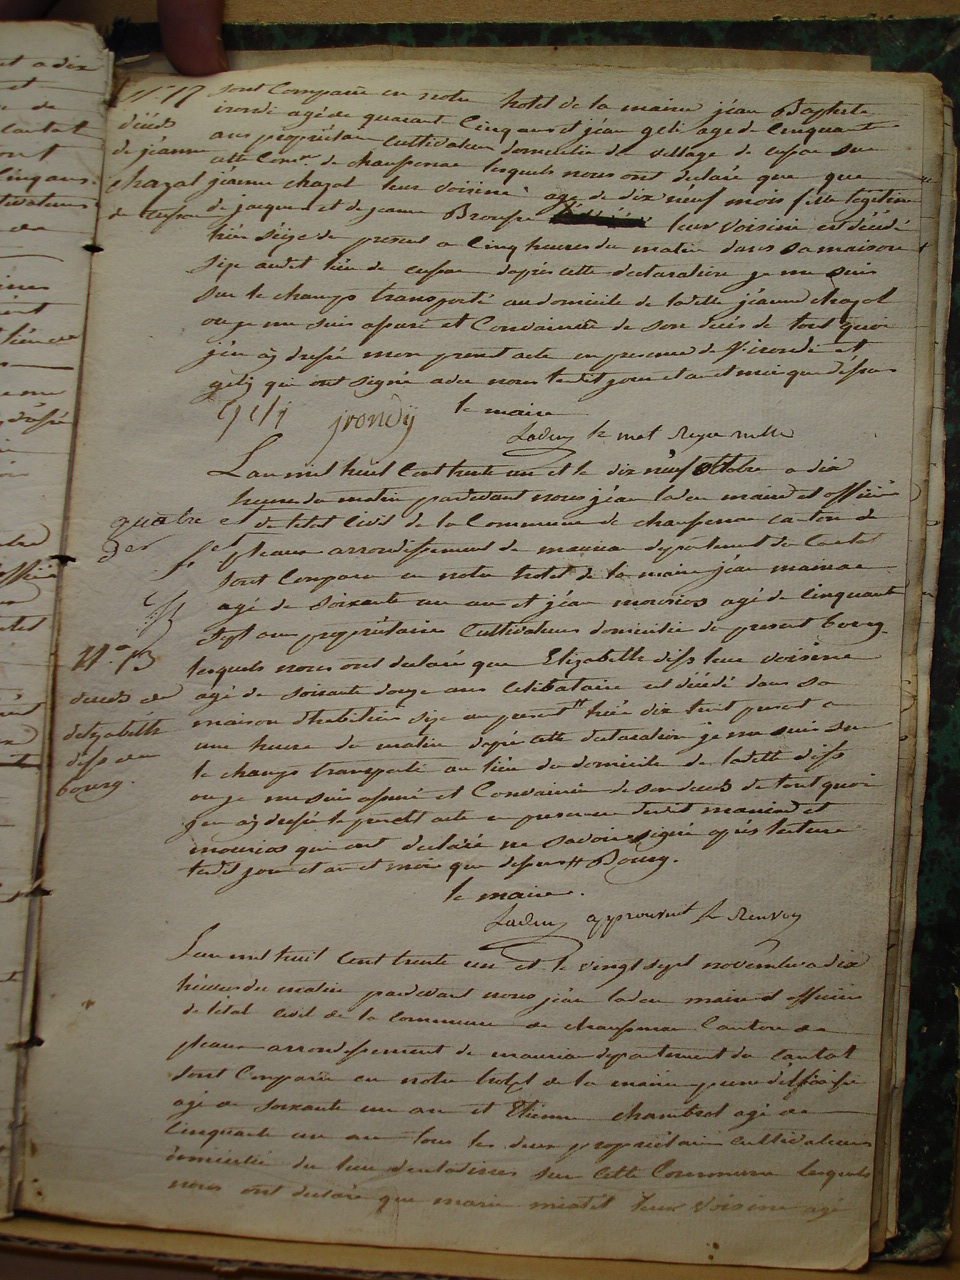 n° 12 sont Comparu en notre hotel de la mairie jéan Baptiste
irondi agé de quarant Cinq ans et jéan geli agé de Cinquant
décés ans propriétair cultivateur domicilie du village de
de jéanne cette Comne de chaussenac lesquels nous ont declaré que que
chazal jéanne chazal leur voisine agé de dix neuf mois fille legitime
de de jacques et de jeanne Brousse leur voisine est décédé
hiér séize de présent a Cinq heures du matin dans sa maison
size audit lieu de d'aprés cette déclaration je me suis
sur le champs transporté au domicile de ladite jéanne chazal
ou je me suis assuré et Convaincu de son décés de tout quoi
j'én ay dressé mon present acte en presence de irondi et
geli qui ont signé avec nous ledit jour et an et mois que déssus
geli jrondij le maire
Laden le mot Rayée nulle
L'an mil huit Cent trente un et le dix neuf octobre a dix
heures du matin pardevant nous jéan laden maire et officier
de l'etat Civil de la Commune de chaussenac canton de
pleaux arrondissement de mauriac departement du Cantal
sont Comparu en notre hotel de la mairie jéan maniac
agé de soixante un an et jéan mourios agé de Cinquant
sept ans propriétaire Cultivateurs domicilie de présent bourg
n° 13 lesquels nous ont déclaré que Elizabette diss leur voisine
décés de agé de soixante douze ans Celibataire est décédé dans sa
delizabette maison d'habition size au present hiér dix huit present a
diss du une heure du matin d'aprés cette declaration je me suis sur
bourg. le champs transporté au lieu du domicile de ladite diss
ou je me suis assuré et Convaincu de son decés de tout quoi
j'en ay dressé le present acte en presence dudit maniac et
mourios qui ont declaré ne savoir signé aprés lecture
ledit jour et an et mois que dessus # Bourg.
le maire.
Laden approuvant le Renvoy
L'an mil huit Cent trente un et le vingt sept novembre a dix
héures du matin pardevant nous jéan laden maire et officier
de l'état civil de la commune de chaussenac Canton de
pleaux arrondissement de mauriac departement du cantal
sont Comparu en notre hotel de la mairie
agé de soixante un an et Etienne chambrot agé de
cinquante un an tous les deux propriétaire cultivateurs
domicilié du lieu sur cette Commune lesquels
nous ont declaré que marie miatet leur Voisine agé